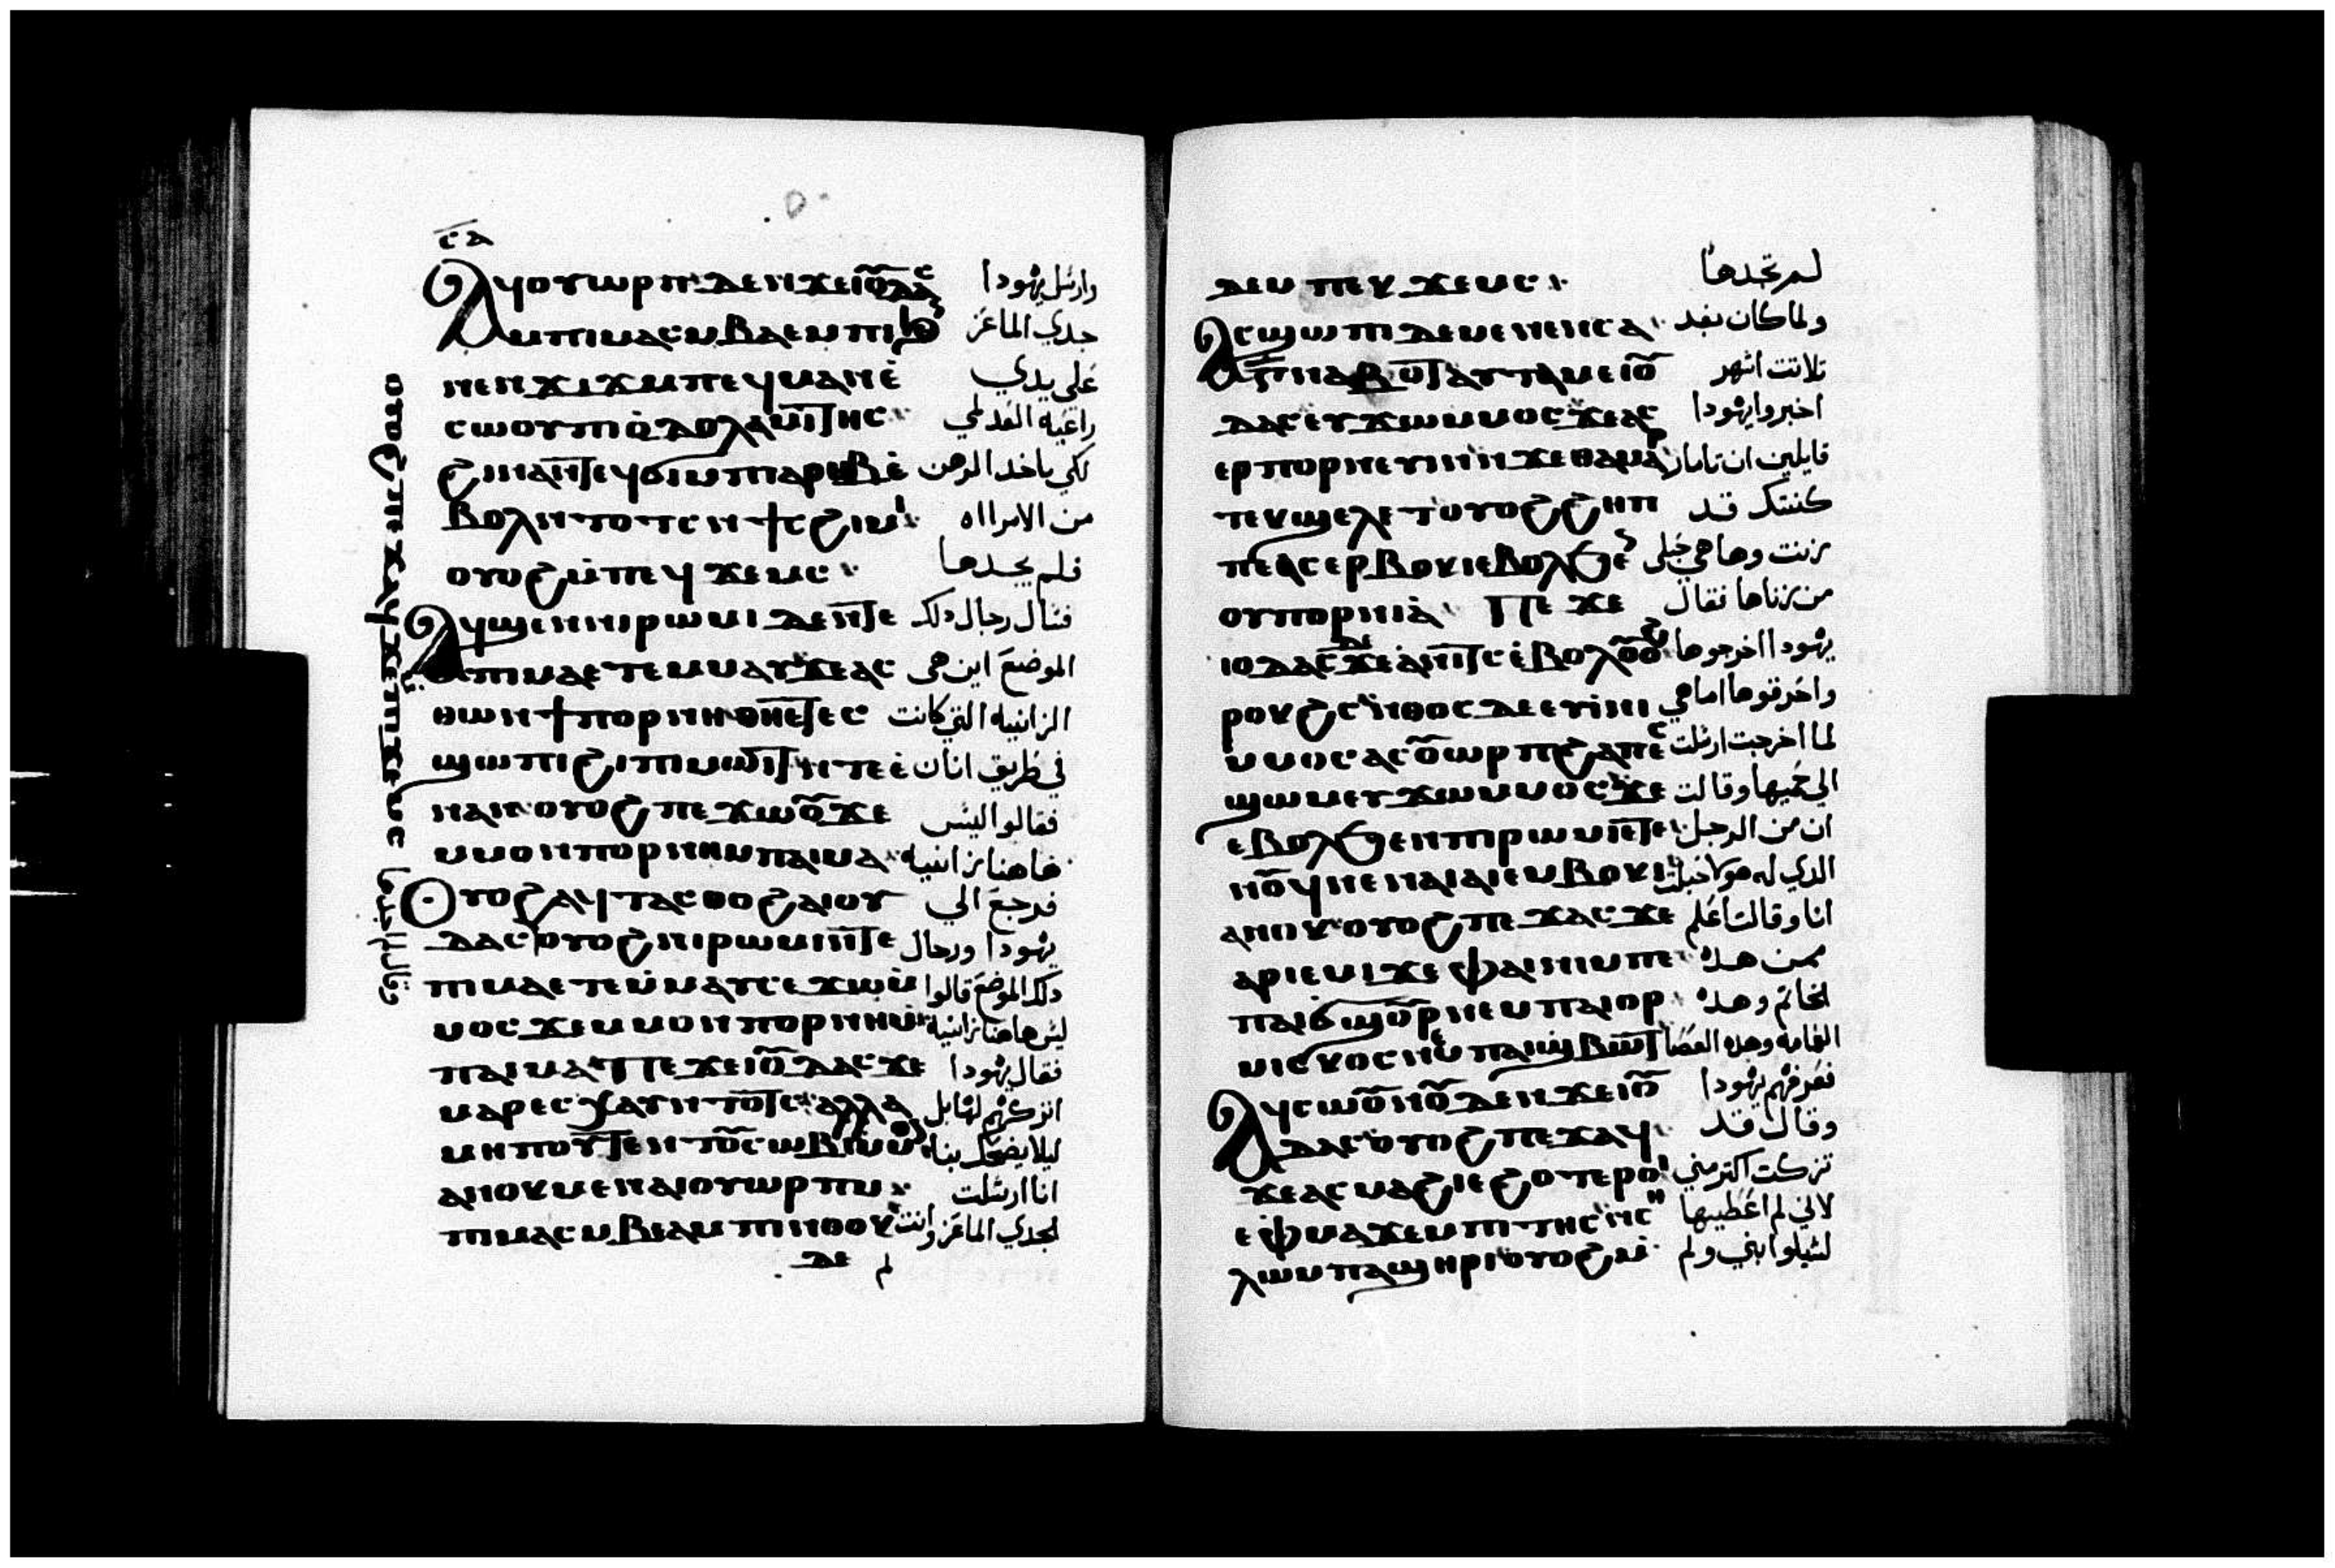 ⲥⲁ
ⲁϥⲟⲩⲱⲣⲡ ⲇⲉ ⲛϫⲉ ⲓⲟⲩⲇⲁⲥ وارسل يهودا
ⲙⲡⲓⲙⲁⲥ ⲙⲃⲁⲉⲙⲡⲓ جدي الماعز
ⲛⲉⲛϫⲓϫ ⲙⲡⲉϥⲙⲁⲛⲉ على يدي
ⲥⲱⲟⲩ ⲡⲓⲟⲇⲟⲗⲗⲁⲙⲓⲧⲏⲥ راعيه العدلمي
ϩⲓⲛⲁ ⲛⲧⲉϥϭⲓ ⲙⲡⲁⲣⲏⲃ ⲉ لكي ياخد الرهن
ⲃⲟⲗ ⲛⲧⲟⲧⲥ ⲛϯⲥϩⲓⲙⲓ من الامرااه
ⲟⲩⲟϩ ⲙⲡⲉϥϫⲉⲙⲥ فلم يجدها
ⲁϥϣⲉⲛ ⲛⲓⲣⲱⲙⲓ ⲇⲉ ⲛⲧⲉ فسال رجال دلك
ⲡⲓⲙⲁ ⲉⲧⲉⲙⲙⲁⲩ ϫⲉ ⲁⲥ الموضع اين هى
ⲑⲱⲛ ϯⲡⲟⲣⲛⲏ ⲑⲏⲉⲧⲉⲥ الزانيه التي كانت
ϣⲱⲡⲓ ϩⲓ ⲡⲓⲙⲱⲓⲧ ⲛⲧⲉ ⲉ في طريق انان
ⲛⲁⲛ ⲟⲩⲟϩ ⲡⲉϫⲱⲟⲩ ϫⲉ فقالوا ليس
ⲙⲙⲟⲛ ⲡⲟⲣⲛⲏ ⲙⲡⲁⲓⲙⲁ هاهنا زانيه
ⲟⲩⲟϩ ⲁϥⲧⲁⲥⲑⲟ ϩⲁ ⲓⲟⲩ فرجع الي
ⲇⲁⲥ ⲟⲩⲟϩ ⲛⲓⲣⲱⲙⲓ ⲛⲧⲉ يهودا ورجال
ⲡⲓⲙⲁ ⲉⲧⲉⲙⲙⲁⲩ ⲥⲉϫⲱ ⲙ دلك الموضع قالوا
ⲙⲟⲥ ϫⲉ ⲙⲙⲟⲛ ⲡⲟⲣⲛⲏ ⲙ ليس هاهنا زانيه
ⲡⲁⲓⲙⲁ ⲡⲉϫⲉ ⲓⲟⲩⲇⲁⲥ ϫⲉ فقال يهودا
ⲙⲁⲣⲉⲥⲭⲁⲩ ⲛⲧⲟⲧⲥ ⲁⲗⲗⲁ اتركهم لها بل
ⲙⲏⲡⲟⲧⲉ ⲛⲧⲟⲩⲥⲱⲃⲓ ⲙⲙⲟⲛ ليلا يضحك بنا
ⲁⲛⲟⲕ ⲙⲉⲛ ⲁⲓⲟⲩⲱⲣⲡ ⲙ انا ارسلت
ⲡⲓⲙⲁⲥ ⲙⲃⲉⲁⲙⲡⲓ ⲛⲑⲟⲕ لجدي الماعز وانت
ⲇⲉ لم
ⲟⲩⲟϩ ⲡⲉϫⲁϥ ϫⲉ ⲙⲡⲓϫⲉⲙⲥ وقال لم اجدها
ⲇⲉ ⲙⲡⲉⲕϫⲉⲙⲥ لم تجدها
ⲁⲥϣⲱⲡⲓ ⲇⲉ ⲙⲉⲛⲉⲛⲥⲁ ولما كان بعد
ⲛⲁⲃⲟⲧ ⲁⲩⲧⲁⲙⲉ ⲓⲟⲩ تلاتت اشهر
ⲇⲁⲥ ⲉⲩϫⲱ ⲙⲙⲟⲥ ϫⲉ ⲁⲥ اخبروا يهودا
ⲉⲣⲡⲟⲣⲛⲉⲩⲓⲛ ⲛϫⲉ ⲑⲁⲙⲁⲣ قايلين ان تامار
ⲧⲉⲕϣⲉⲗⲉⲧ ⲟⲩⲟϩ ϩⲏⲡ كنتك قد
ⲡⲉ ⲁⲥⲉⲣⲃⲟⲕⲓ ⲉⲃⲟⲗϧⲉⲛ زنت وها هي حبلى
ⲟⲩⲡⲟⲣⲛⲓⲁ ⲡⲉϫⲉ من زناها فقال
ⲓⲟⲩⲇⲁⲥ ⲇⲉ ϫⲉ ⲁⲛⲓⲧⲥ ⲉⲃⲟⲗ ⲟⲩⲟϩ يهودا اخرجوها
ⲣⲟⲕϩⲥ ⲛⲑⲟⲥ ⲇⲉ ⲉⲩⲓⲛⲓ واحرقوها اما هي
ⲙⲙⲟⲥ ⲁⲥⲟⲩⲱⲣⲡ ϩⲁ ⲡⲉⲥ لما اخرجت ارسلت
ϣⲱⲙ ⲉⲥϫⲱ ⲙⲙⲟⲥ ϫⲉ الي حميها وقالت
ⲉⲃⲟⲗϧⲉⲛ ⲡⲓⲣⲱⲙⲓ ⲉⲧⲉ ان من الرجل
ⲛⲟⲩϥ ⲛⲉ ⲛⲁⲓ ⲁⲓⲉⲙⲃⲟⲕⲓ الدي له هولا حبلت
ⲁⲛⲟⲕ ⲟⲩⲟϩ ⲡⲉϫⲁⲥ ϫⲉ انا وقالت اعلم
ⲁⲣⲓⲉⲙⲓ ϫⲉ ⲫⲁ ⲛⲓⲙ ⲡⲉ لمن هده
ⲡⲁⲓϭϣⲟⲩⲣ ⲛⲉⲙ ⲡⲁⲓⲟⲣ الخاتم وهده
ⲙⲓⲥⲕⲟⲥ ⲛⲉⲙ ⲡⲁⲓϣⲃⲱⲧ العمامه وهده العصا
ⲁϥⲥⲱⲟⲩⲛⲟⲩ ⲇⲉ ⲛϫⲉ ⲓⲟⲩ فعرفهم يهودا
ⲇⲁⲥ ⲟⲩⲟϩ ⲡⲉϫⲁϥ وقال قد
ϫⲉ ⲁⲥⲙⲁϩⲓⲉ ϩⲟⲧⲉⲣⲟⲓ تزكت اكتر مني
ⲉⲫⲙⲁ ϫⲉ ⲙⲡⲓⲧⲏⲓⲥ ⲛⲥⲏ لاني لم اعطيها
ⲗⲱⲙ ⲡⲁϣⲏⲣⲓ ⲟⲩⲟϩ ⲙ لشيلوا ابني ولم